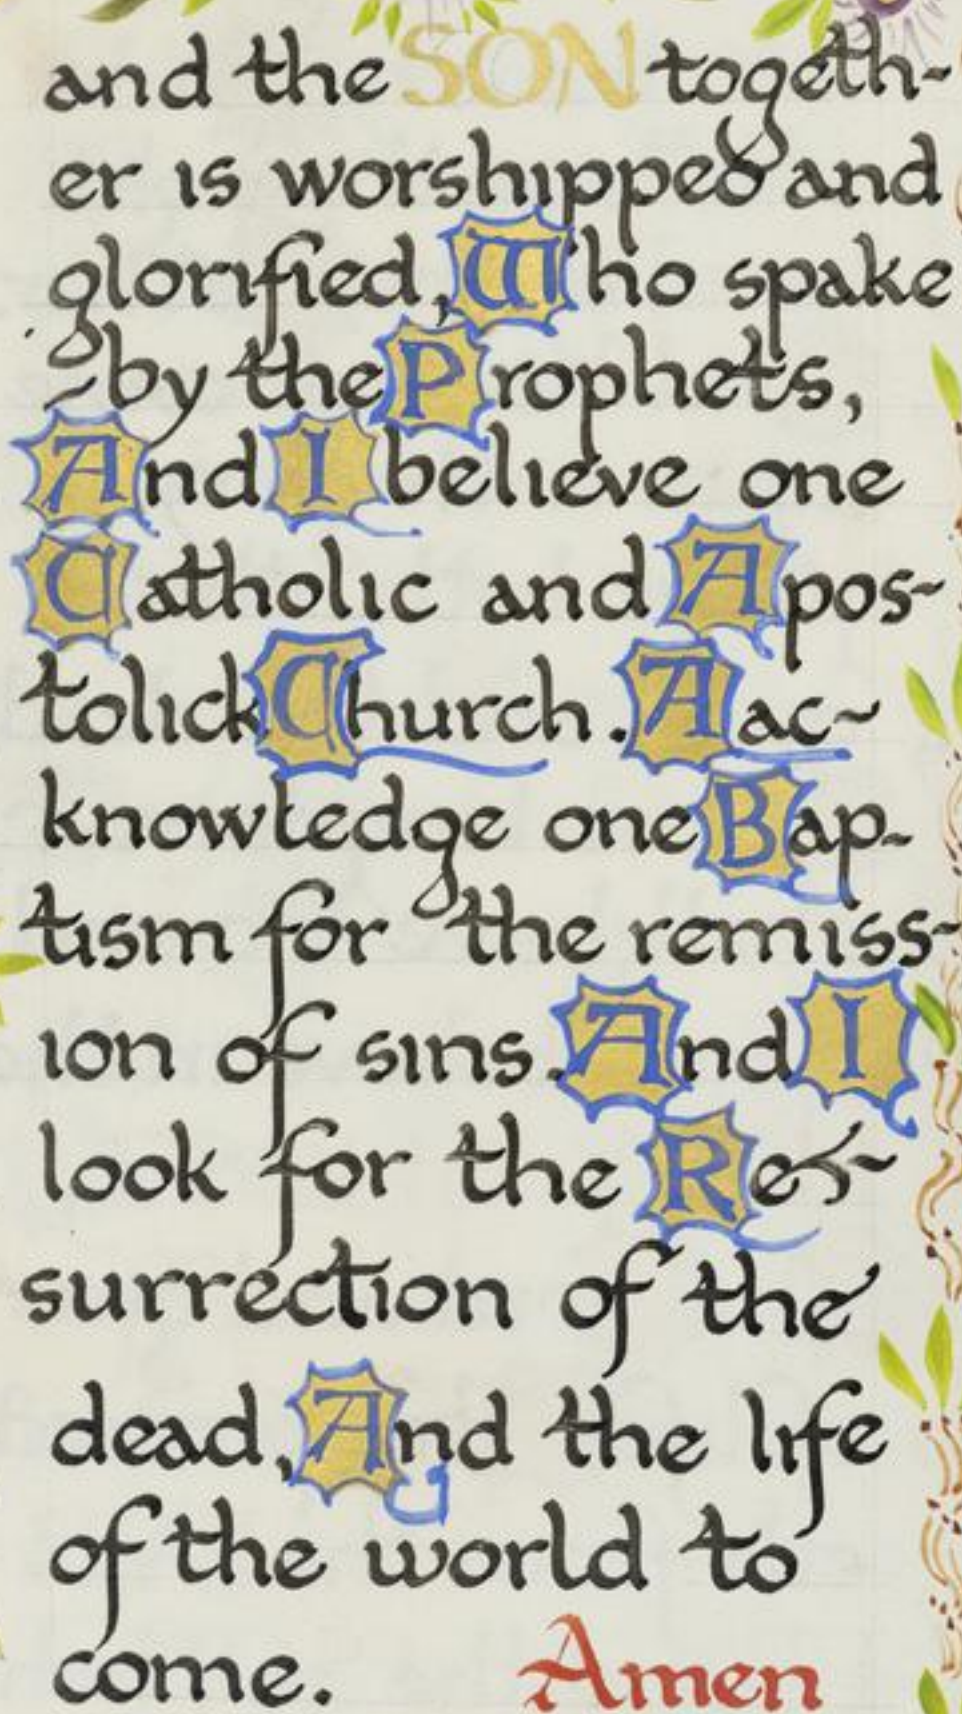 and the SON togeth-
er is worshipped and
glorified, Who spake
~by the Prophets,
And I believe one
Catholic and Apos-
tolick Church. A ac~
knowledge one Bap-
tism for the remiss-
ion of sins. And I
look for the Res~
surrection of the
dead, And the life
of the world to
come. Amen